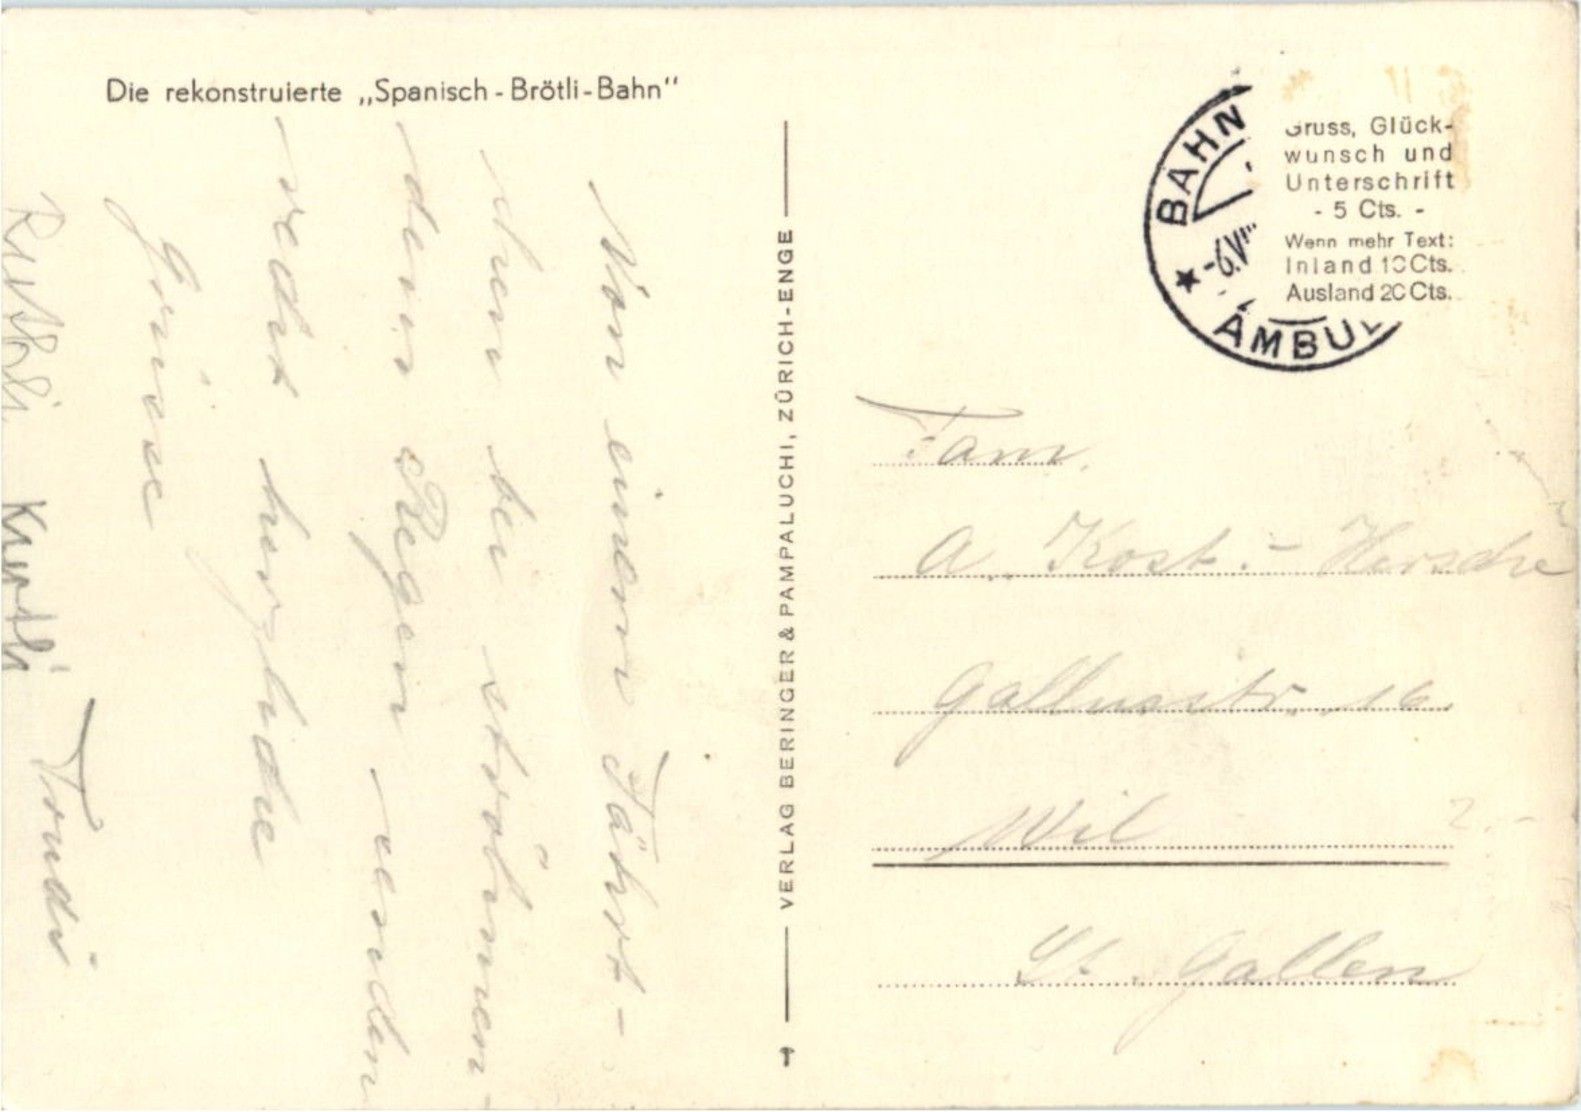 Die rekonstruierte „Spanisch-Brötli-Bahn"
Von einem Fährt-
chen bei strömen-
dem Regen senden
recht herzliche
Grüsse
Ruthli Kurtli Trudi
VERLAG BERINGER & PAMPALUCHI, ZÜRICH-ENGE
BAHN
-6.VIII
AMBUL
Gruss, Glück-
wunsch und
Unterschrift
- 5 Cts. -
Wenn mehr Text:
Inland 10 Cts.
Ausland 20 Cts.
Fam.
A. Kost.-Hersche
Gallusstr. 16.
Wil
St. Gallen
2.-